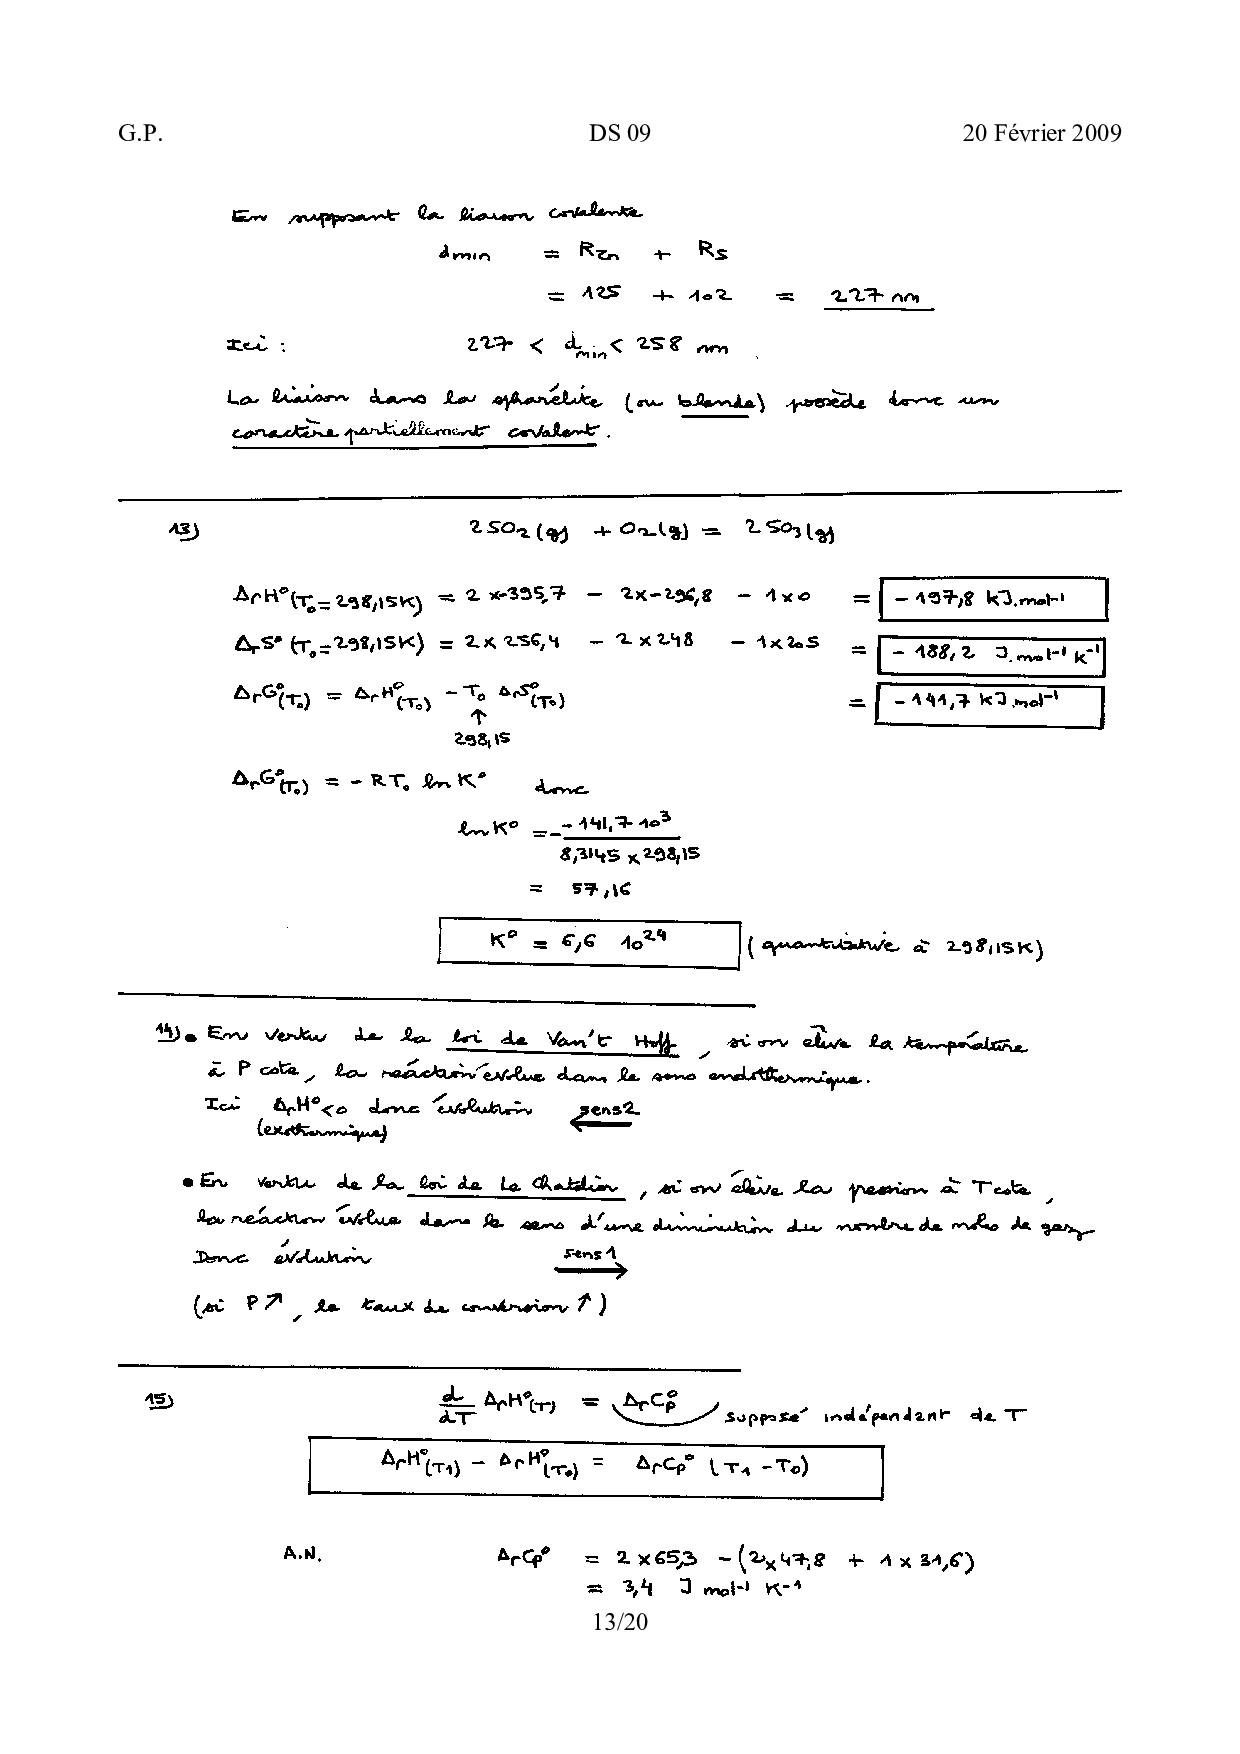 G.P. DS 09 20 Février 2009
En supposant la liaison covalente
dmin = RZn + RS
= 125 + 102 = 227 nm
Ici : 227 < dmin < 258 nm
La liaison dans la spharélite (ou blende) possède donc un
caractère partiellement covalent.
13) 2 SO2 (g) + O2 (g) = 2 SO3 (g)
ΔrH°(T0=298,15K) = 2 x-395,7 - 2x-296,8 - 1x0 = - 197,8 kJ.mol-1
ΔrS° (T0=298,15K) = 2 x 256,4 - 2 x 248 - 1x205 = - 188,2 J.mol-1 K-1
ΔrG°(T0) = ΔrH°(T0) - T0 ΔrS°(T0) = - 141,7 kJ.mol-1
↑
298,15
ΔrG°(T0) = - RT0 ln K° donc
ln K° = - - 141,7 10^3 / 8,3145 x 298,15
= 57,16
K° = 6,6 10^24 (quantitative à 298,15K)
14) • En vertu de la loi de Van't Hoff, si on élève la température
à P cste, la réaction évolue dans le sens endothermique.
Ici ΔrH°<0 donc évolution sens2 ←
(exothermique)
• En vertu de la loi de Le Chatelier, si on élève la pression à T cste,
la réaction évolue dans le sens d'une diminution du nombre de moles de gaz
Donc évolution sens1 →
(si P↗, le taux de conversion ↑)
15) d/dT ΔrH°(T) = ΔrCp° supposé indépendant de T
ΔrH°(T1) - ΔrH°(T0) = ΔrCp° (T1 - T0)
A.N. ΔrCp° = 2 x 65,3 - (2x47,8 + 1 x 31,6)
= 3,4 J mol-1 K-1
13/20